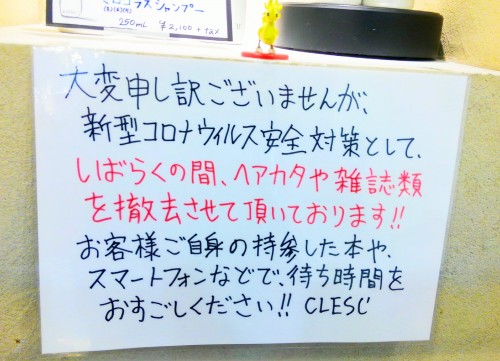 ラスシャンプー
250mL ¥2,100+tax
大変申し訳ございませんが、
新型コロナウィルス安全対策として、
しばらくの間、ヘアカタや雑誌類
を撤去させて頂いております!!
お客様ご自身の持参した本や、
スマートフォンなどで、待ち時間を
おすごしください!! CLESC